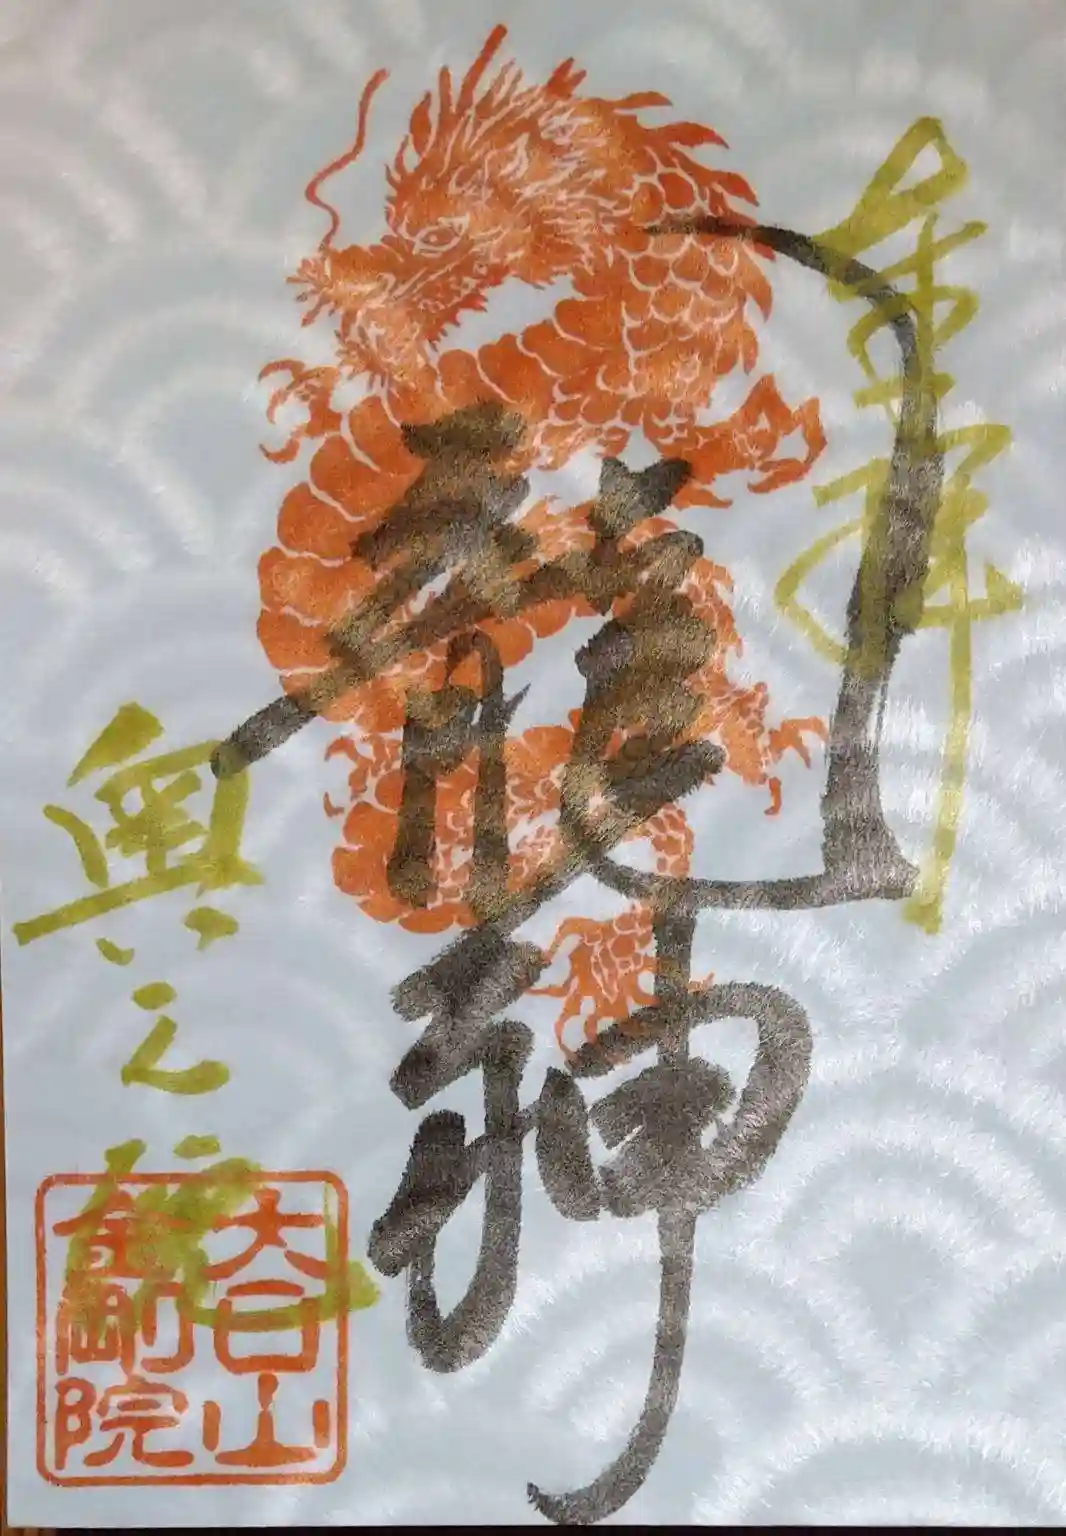 奉拝
龍神
奥之院
大日山
金剛院